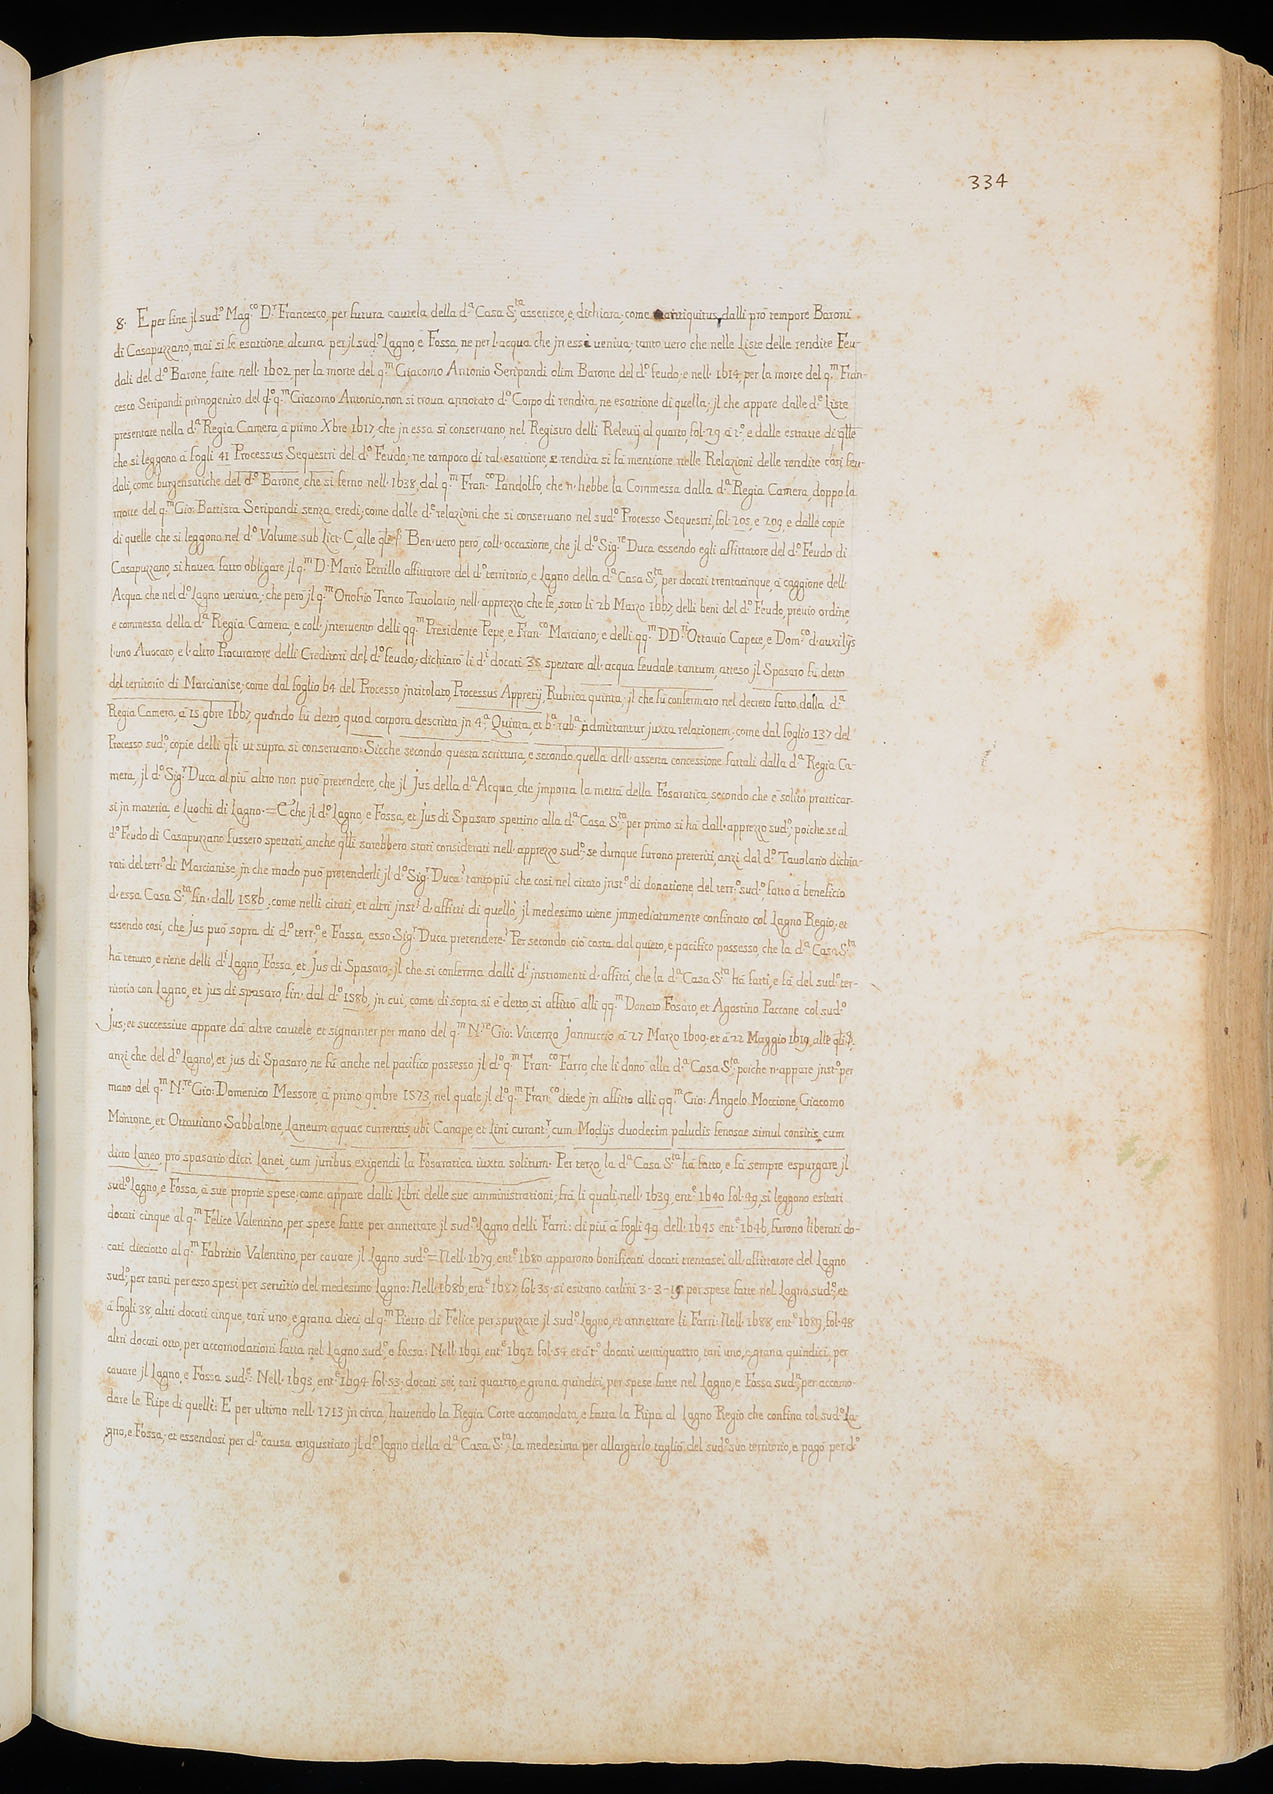 334
8. E per fine jl sud.º Mag.co D.r Francesco, per futura cautela della d.a Casa S.ta, asserisce, e, dichiara, come antiquitus, dalli prõ tempore Baroni
di Casapuzzano, mai si fe esattione alcuna per jl sud.º Lagno, è Fossa, ne per l'acqua che jn essi ueniua; tanto uero che nelle Liste delle rendite Feu-
dali del d.º Barone, fatte nell' 1602, per la morte del q.m Giacomo Antonio Seripandi olim Barone del d.º feudo, e nell' 1614, per la morte del q.m Fran-
cesco Seripandi primogenito del d.º q.m Giacomo Antonio, non si troua annotato d.º Corpo di rendita, ne esattione di quella; jl che appare dalle d.e Liste
presentate nella d.a Regia Camera, à primo Xbre 1617, che jn essa si conseruano, nel Registro delli Releuij al quarto, fol. 29 à t.º, e dalle estratte di qlle
che si leggono à fogli 41 Processus Sequestri del d.º Feudo; ne tampoco di tal esattione, e rendita si fà mentione nelle Relazioni delle rendite così feu-
dali, come burgensatiche del d.º Barone, che si ferno nell' 1638, dal q.m Fran.co Pandolfo, che n'hebbe la Commessa dalla d.a Regia Camera, doppo la
morte del q.m Gio: Battista Seripandi senza eredi; come dalle d.e relazioni che si conseruano nel sud.º Processo Sequestri, fol. 205, e 209, e dalle copie
di quelle che si leggono nel d.º Volume sub Litt. C, alle Ben uero però, coll' occasione, che jl d.º Sig.re Duca essendo egli affittatore del d.º Feudo di
Casapuzzano, si hauea fatto obligare jl q.m D. Mario Petrillo affittatore del d.º territorio, e Lagno della d.a Casa S.ta, per docati trentacinque, à caggione dell'
Acqua che nel d.º Lagno ueniua; che però jl q.m Onofrio Tanco Tauolario, nell' apprezzo che fe, sotto li 26 Marzo 1667, delli beni del d.º Feudo, preuio ordine,
e commessa della d.a Regia Camera, e coll' jnteruento delli qq.m Presidente Pepe, e Fran.co Marciano, e delli qq.m DD.ri Ottauio Capece, e Dom.co d'auxilijs
l'uno Auocato, e l'altro Procuratore delli Creditori del d.º feudo; dichiarò li d.i docati 35 spettare all' acqua feudale tantum, atteso jl Spasaro fù detto
del territorio di Marcianise; come dal foglio 64 del Processo jntitolato, Processus Appretij, Rubrica quinta, jl che fù confermato nel decreto fatto, dalla d.a
Regia Camera, à 15 9bre 1667, quando fù detto, quod corpora descritta jn 4.a Quinta, et 6.a rub.a admittantur juxta relationem, come dal foglio 137 del
Processo sud.º, copie delli qli ut supra si conseruano: Sicche secondo questa scrittura, e secondo quella dell' asserta concessione fattali dalla d.a Regia Ca-
mera, jl d.º Sig.r Duca al più altro non può pretendere, che jl Jus della d.a Acqua, che jmporta la mettà della Fosaratica, secondo che è solito pratticar-
si jn materia, e luochi di Lagno = E che jl d.º Lagno, e Fossa, et Jus di Spasaro spettino alla d.a Casa S.ta, per primo si hà dall' apprezzo sud.º; poiche se al
d.º Feudo di Casapuzzano fussero spettati, anche qlli sarebbero stati considerati nell' apprezzo sud.º; se dunque furono preteriti, anzi dal d.º Tauolario dichia-
rati del terr.º di Marcianise, jn che modo può pretenderli jl d.º Sig.r Duca? tanto più che così nel citato jnst.º di donatione del terr.º sud.º, fatto à beneficio
d'essa Casa S.ta fin' dall' 1586, come nelli citati, et altri jnst.i d'affitti di quello, jl medesimo uiene jmmediatamente confinato col Lagno Regio, et
essendo così, che Jus può sopra di d.º terr.º, e Fossa, esso Sig.r Duca pretendere? Per secondo ciò costa dal quieto, e pacifico possesso, che la d.a Casa S.ta
hà tenuto, e tiene delli d.i Lagno, Fossa, et Jus di Spasaro; jl che si conferma dalli d.i jnstromenti d'affitti, che la d.a Casa S.ta hà fatti, e fà del sud.º ter-
ritorio con Lagno, et jus di spasaro, fin' dal d.º 1586, jn cui, come di sopra si è detto, si affittò alli qq.m Donato Fosaro, et Agostino Paccone col sud.º
Jus, et successiue appare dà altre cautele, et signanter per mano del q.m N.re Gio: Vincenzo Jannuccio à 27 Marzo 1600, et à 22 Maggio 1619, alle
anzi che del d.º Lagno, et jus di Spasaro, ne fù anche nel pacifico possesso jl d.º q.m Fran.co Farro, che li donò alla d.a Casa S.ta, poiche n'appare jnst.º per
mano del q.m N.re Gio: Domenico Messore, à primo 9mbre 1573, nel quale jl d.º q.m Fran.co diede jn affitto alli qq.m Gio: Angelo Moccione, Giacomo
Montone, et Ottauiano Sabbalone, Laneum aquae currentis, ubi Canape, et Lini curant.r, cum Modijs duodecim paludis fenosae simul consitis, cum
dicto Laneo, pro spasario dicti Lanei, cum juribus exigendi la Fosaratica iuxta solitum. Per terzo, la d.a Casa S.ta hà fatto, e fà sempre espurgare jl
sud.º Lagno, e Fossa, à sue proprie spese; come appare dalli libri delle sue amministrationi; frà li quali, nell' 1639, ent.e 1640 fol. 49, si leggono esitati
docati cinque al q.m Felice Valentino, per spese fatte per annettare jl sud.º Lagno delli Farri: di più à fogli 49 dell' 1645 ent.e 1646, furono liberati do-
cati dieciotto al q.m Fabritio Valentino, per cauare jl Lagno sud.º = Nell' 1679, ent.e 1680 apparono bonificati docati trentasei all' affittatore del Lagno
sud.º, per tanti per esso spesi per seruitio del medesimo Lagno: Nell' 1686, ent.e 1687 fol. 35, si esitano carlini 3-3-15 per spese fatte nel Lagno sud.º; et
à fogli 38, altri docati cinque, tarì uno, e grana dieci, al q.m Pietro di Felice, per spuzzare jl sud.º Lagno, et annettare li Farri: Nell' 1688, ent.e 1689, fol. 48
altri docati otto, per accomodationi fatta nel Lagno sud.º, e fossa: Nell' 1691, ent.e 1692 fol. 54 et à t.º docati uentiquattro, tarì uno, e grana quindici, per
cauare jl Lagno, e Fossa sud.e: Nell' 1693, ent.e 1694 fol. 53, docati sei, tarì quattro, e grana quindici, per spese fatte nel Lagno, e Fossa sud.a, per accomo-
dare le Ripe di quelli: E per ultimo nell' 1713 jn circa, hauendo la Regia Corte accomodata, e fatta la Ripa al Lagno Regio che confina col sud.º La-
gno, e Fossa; et essendosi per d.a causa angustiato jl d.º Lagno della d.a Casa S.ta, la medesima per allargarlo tagliò del sud.º suo territorio, e pagò per d.º